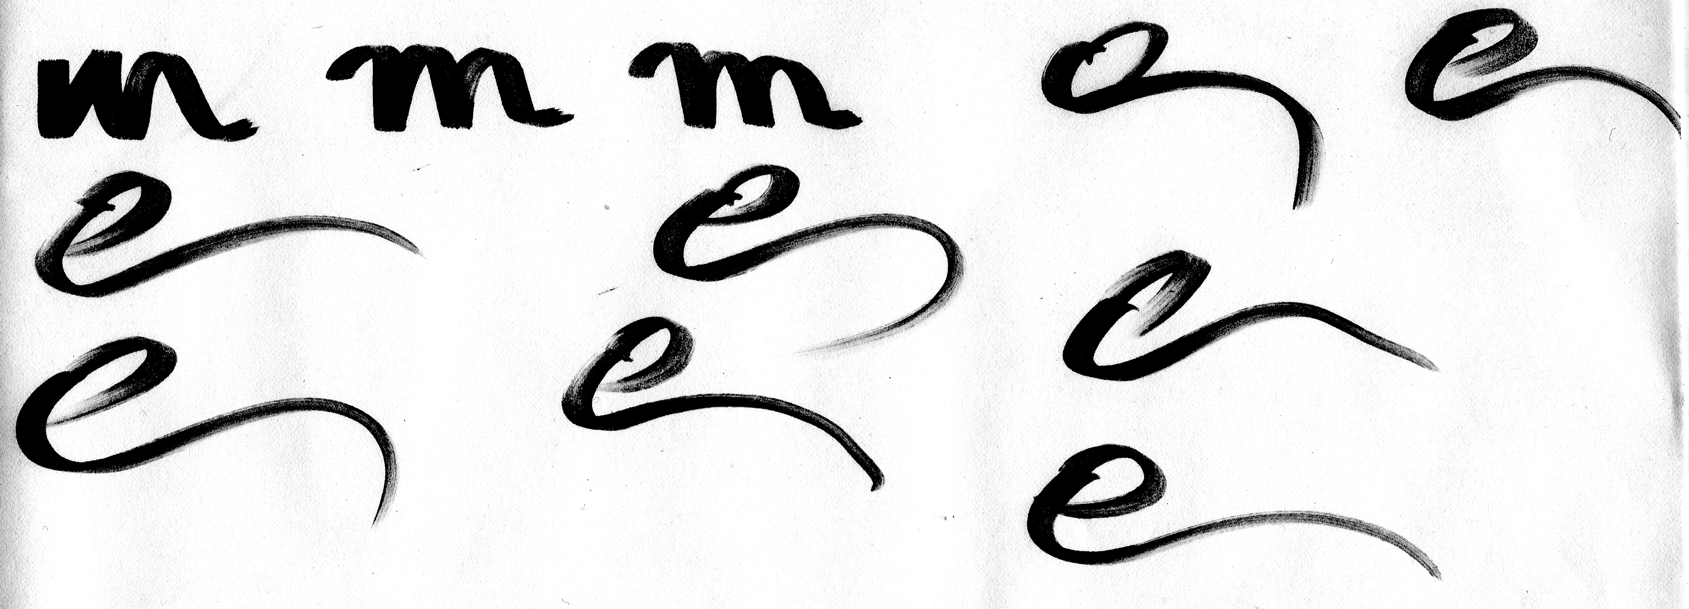 m m m e e
e e e
e e e